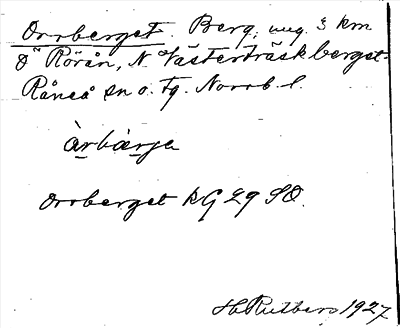 Orrberget. Berg, ung. 3 km
Ö Rörån, N Västerträskberget.
Råneå sn o. tg. Norrb. l.
àrbærje
Orrberget kG 29 SO.
H. Rutberg 1927